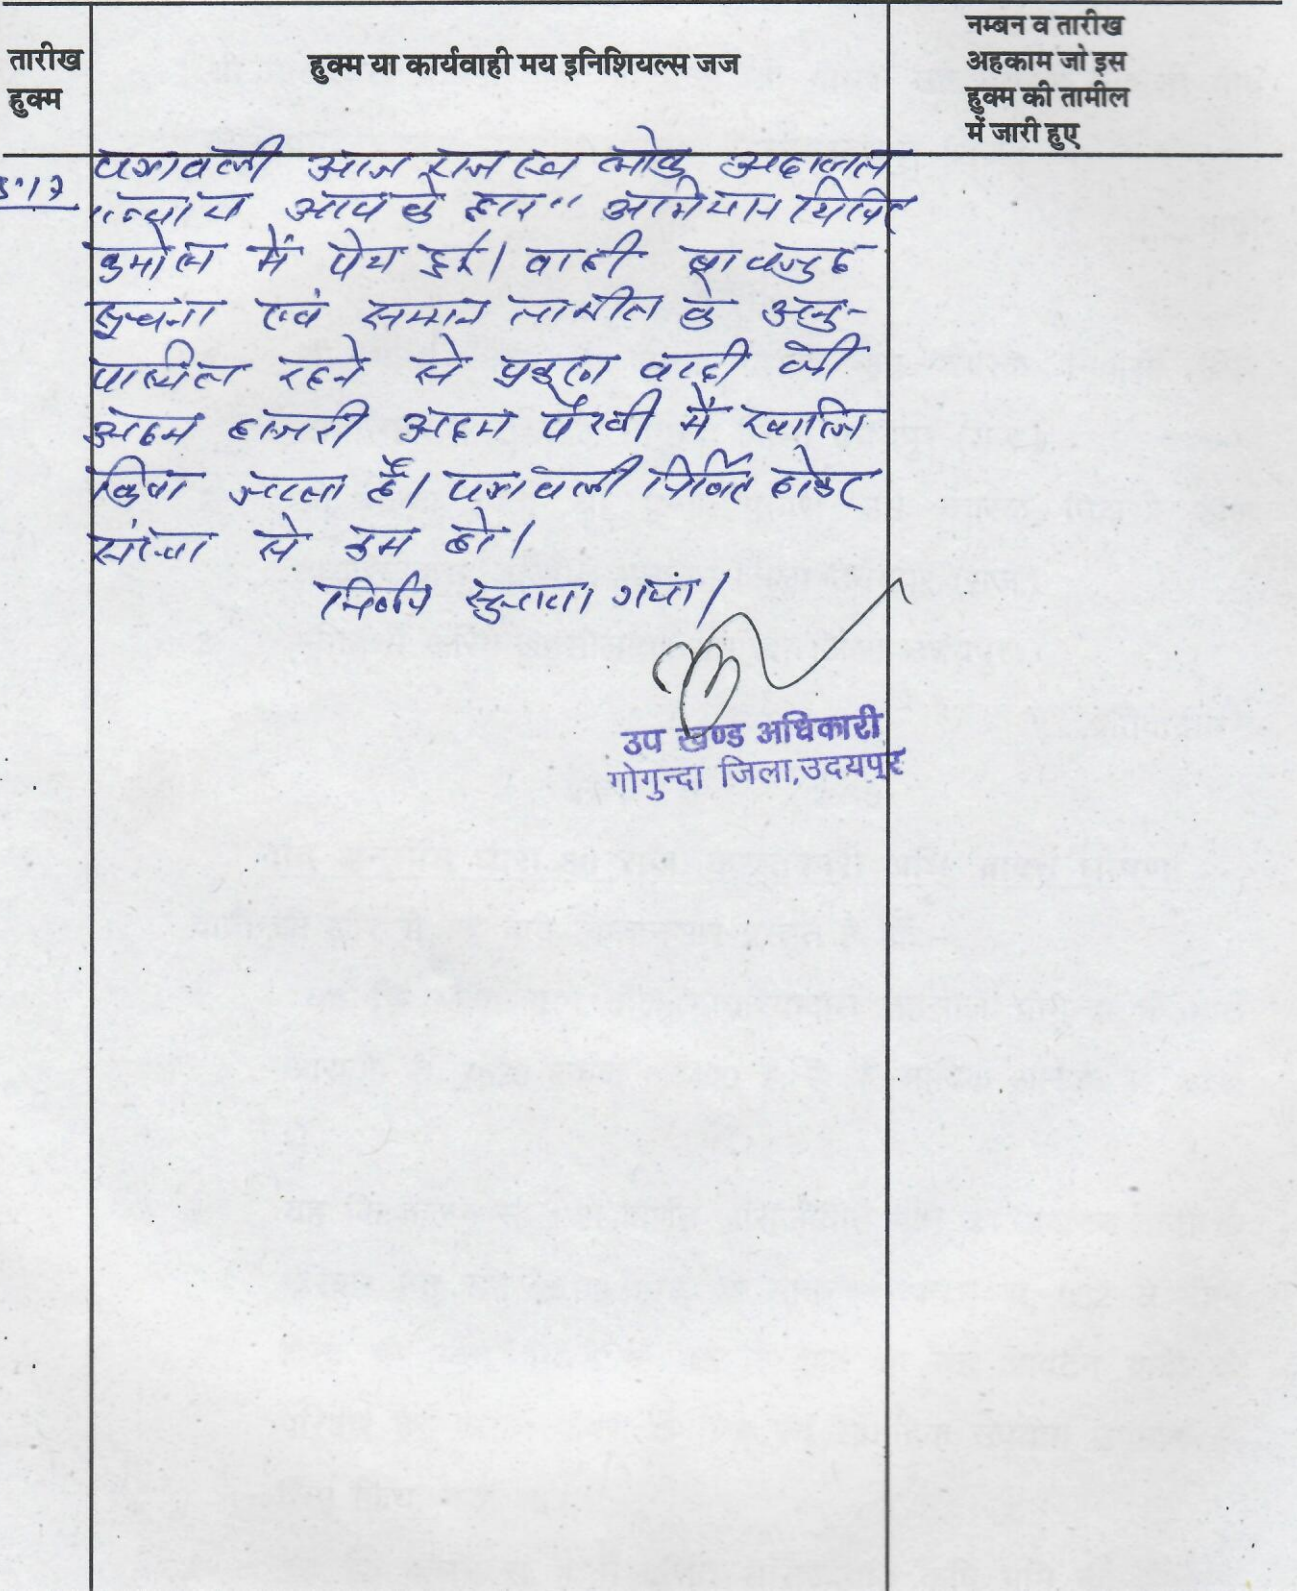 तारीख
हुक्म
हुक्म या कार्यवाही मय इनिशियल्स जज
नम्बन व तारीख
अहकाम जो इस
हुक्म की तामील
में जारी हुए
पत्रावली आज राजस्व लोक अदालत
"न्याय आपके द्वार" अभियान शिविर
कमोल में पेश हुई। वादी बावजूद
सूचना एवं समान तामील के अनु-
पस्थित रहने से प्रकरण वादी की
अदम हाजरी अदम पैरवी में खारिज
किया जाता है। पत्रावली निर्णित होकर
संख्या से कम हो।
निर्णय सुनाया गया।
उप खण्ड अधिकारी
गोगुन्दा जिला,उदयपुर